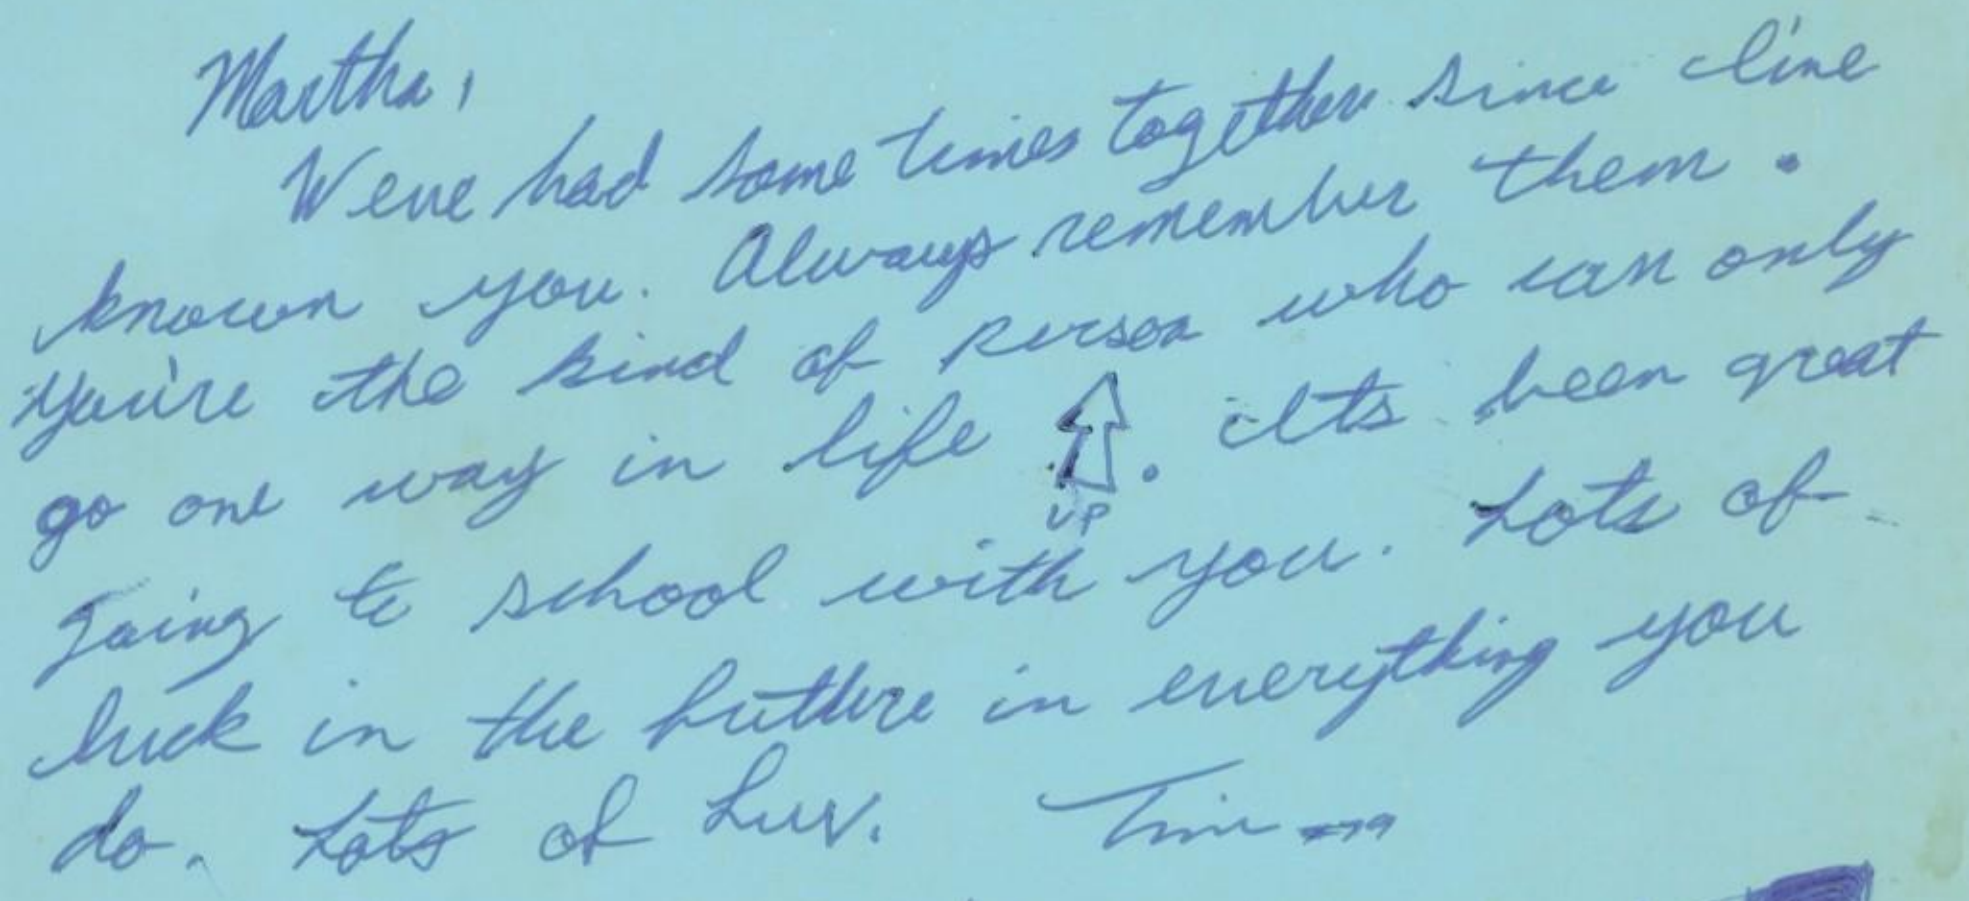 Martha,
Weve had some times together since I've
known you. Always remember them.
You're the kind of person who can only
go one way in life. Its been great
UP
going to school with you. Lots of
luck in the future in everything you
do. Lots of Luv. Tim